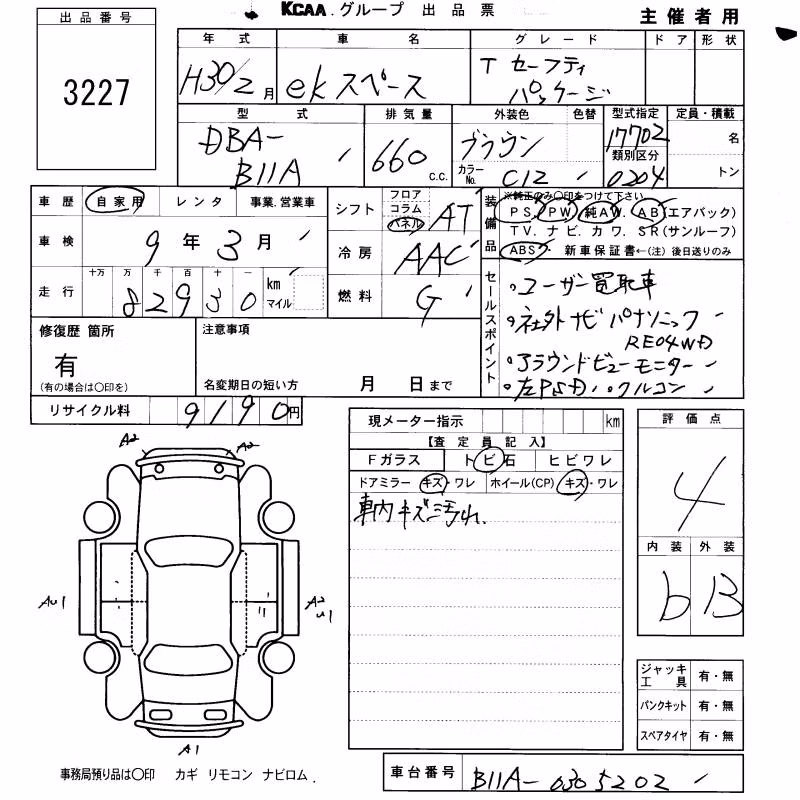 KCAA グループ 出品票
主催者用
出品番号
3227
年式 車名 グレード ドア 形状
H30/2月 ekスペース T セーフティ
パッケージ
型式 排気量 外装色 色替 型式指定 定員・積載
DBA-
B11A
660 c.c.
ブラウン
カラーNo. C12
17702
類別区分
0204
名
トン
車歴 自家用 レンタ 事業.営業車
車検 9年3月
走行 十万 万 千 百 十 一
82930 km
マイル
シフト フロア
コラム
パネル
AT
冷房 AAC
燃料 G
装備品 ※純正のみ○印をつけて下さい
PS. PW. 純AW. AB(エアバック)
TV. ナビ. カワ. SR(サンルーフ)
ABS 新車保証書←(注)後日送りのみ
セールスポイント
・ユーザー買取車
・社外ナビ パナソニック
RE04WD
・アラウンドビューモニター
・左PSD・クルコン
修復歴 箇所
有
(有の場合は○印を)
注意事項
名変期日の短い方 月 日まで
リサイクル料 9190円
現メーター指示 km
【査定員記入】
Fガラス トビ石 ヒビワレ
ドアミラー キズ・ワレ ホイール(CP) キズ・ワレ
車内キズ汚れ.
評価点
4
内装 外装
b B
A2 A2
AU1
A2
U1
A1
ジャッキ
工具
有・無
パンクキット 有・無
スペアタイヤ 有・無
事務局預り品は○印 カギ リモコン ナビロム.
車台番号 B11A-0305202